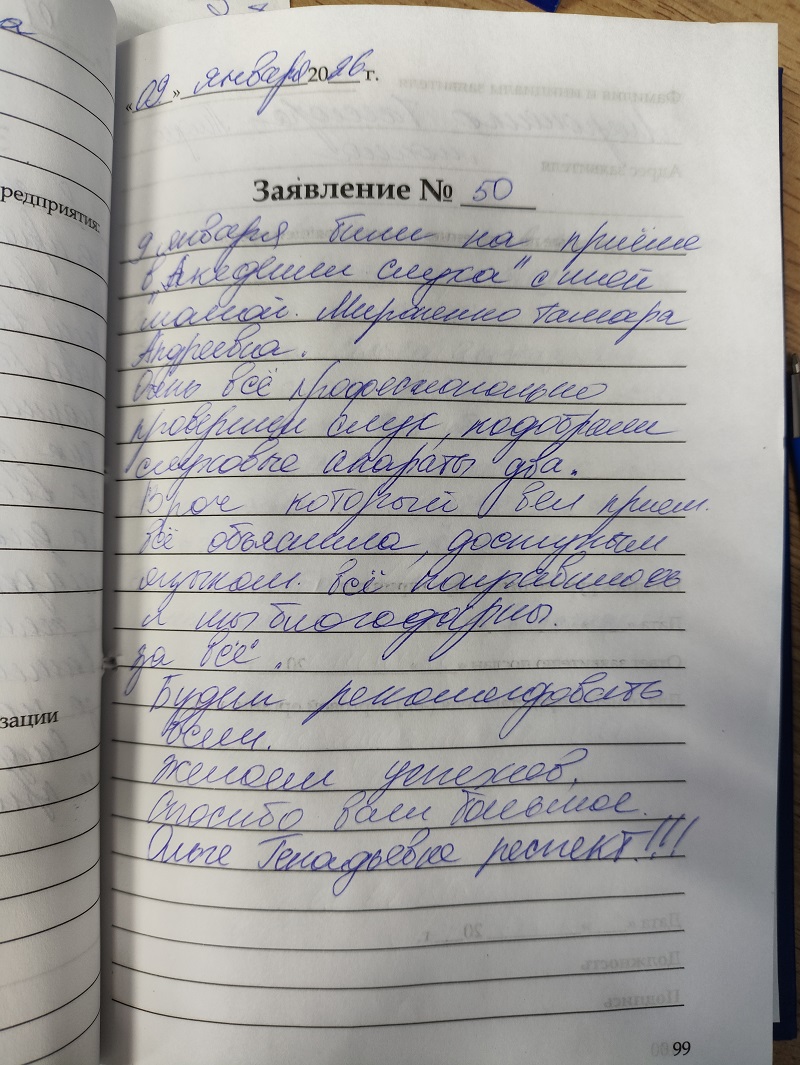 а
редприятия:
зации
«09» января 2026 г.
Заявление № 50
9 января были на приёме
в "Академии слуха" с моей
мамой. Мироненко Тамара
Андреевна.
Очень всё професионально
проверили слух, подобрали
слуховые апараты два.
Врач который вел прием.
всё объяснила, доступным
языком. Всё понравилось
и мы благодарны.
за всё.
Будем рекомендовать
всем.
Желаем успехов.
Спасибо вам большое.
Ольге Генадьевне респект!!!
99